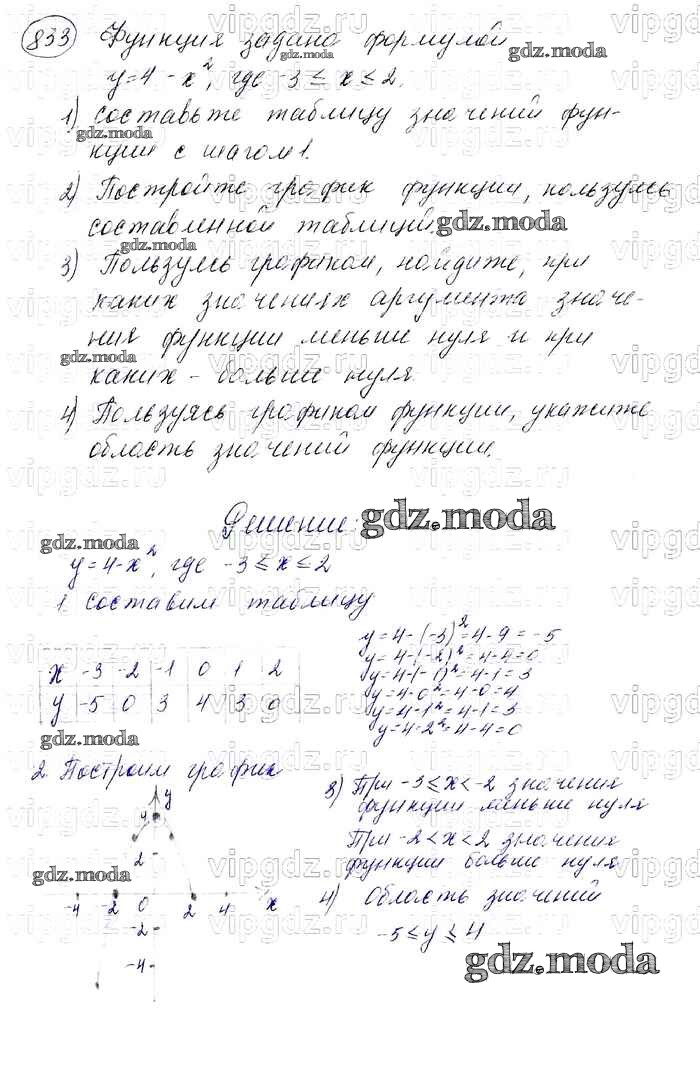 833 Функция задана формулой
y=4-x², где -3≤x≤2.
1) составьте таблицу значений фун-
кции с шагом 1.
2) Постройте график функции, пользуясь
составленной таблицей.
3) Пользуясь графиком, найдите, при
каких значениях аргумента значе-
ния функции меньше нуля и при
каких - больше нуля
4) Пользуясь графиком функции, укажите
область значений функции.
Решение:
y=4-x², где -3≤x≤2
1 составим таблицу
x -3 -2 -1 0 1 2
y -5 0 3 4 3 0
y=4-(-3)²=4-9=-5
y=4-(-2)²=4-4=0
y=4-(-1)²=4-1=3
y=4-0²=4-0=4
y=4-1²=4-1=3
y=4-2²=4-4=0
2 Построим график
y
4
2
-4 -2 0 2 4 x
-2
-4
3) При -3≤x<-2 значения
функции меньше нуля
При -2<x<2 значения
функции больше нуля
4) Область значений
-5≤y≤4
gdz.moda
vipgdz.ru